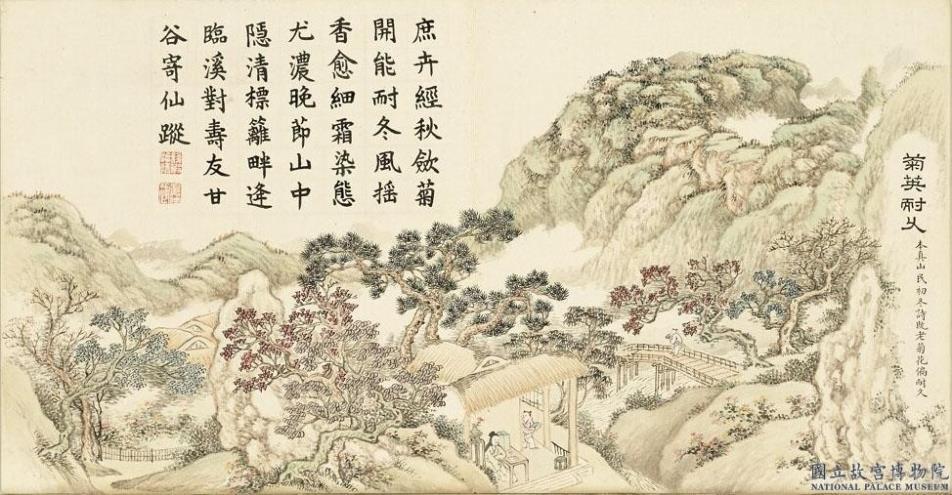 菊英耐久
本真山民初冬詩老菊花偏耐久
庶卉經秋斂菊
開能耐冬風搖
香愈細霜染態
尤濃晚節山中
隱清標籬畔逢
臨溪對壽友甘
谷寄仙蹤
國立故宮博物院
NATIONAL PALACE MUSEUM